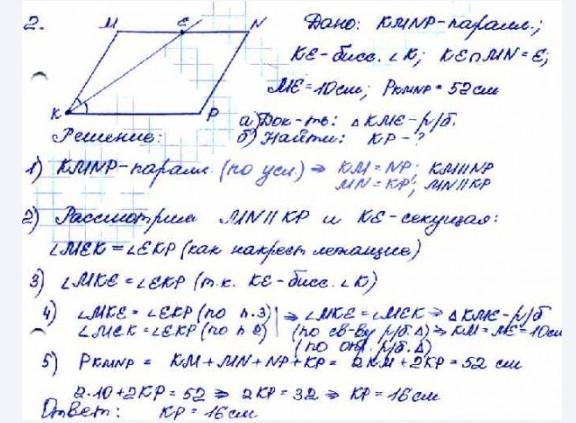 2.
M E N
K P
Дано: KMNP-паралл.;
KE-бисс. ∠K; KE∩MN=E;
ME=10см; PKMNP=52см
а) Док-ть: △KME-р/б.
б) Найти: KP-?
Решение:
1) KMNP-паралл. (по усл) ⇒ KM=NP; KM||NP
MN=KP; MN||KP
2) Рассмотрим MN||KP и KE-секущая:
∠MEK=∠EKP (как накрест лежащие)
3) ∠MKE=∠EKP (т.к. KE-бисс. ∠K)
4) ∠MKE=∠EKP (по п.3) ⇒ ∠MKE=∠MEK ⇒ △KME-р/б
∠MEK=∠EKP (по п 2) (по св-ву р/б.△) ⇒ KM=ME=10см
(по опр. р/б.△)
5) PKMNP = KM+MN+NP+KP = 2KM+2KP=52 см
2·10+2KP=52 ⇒ 2KP=32 ⇒ KP=16см
Ответ: KP=16см